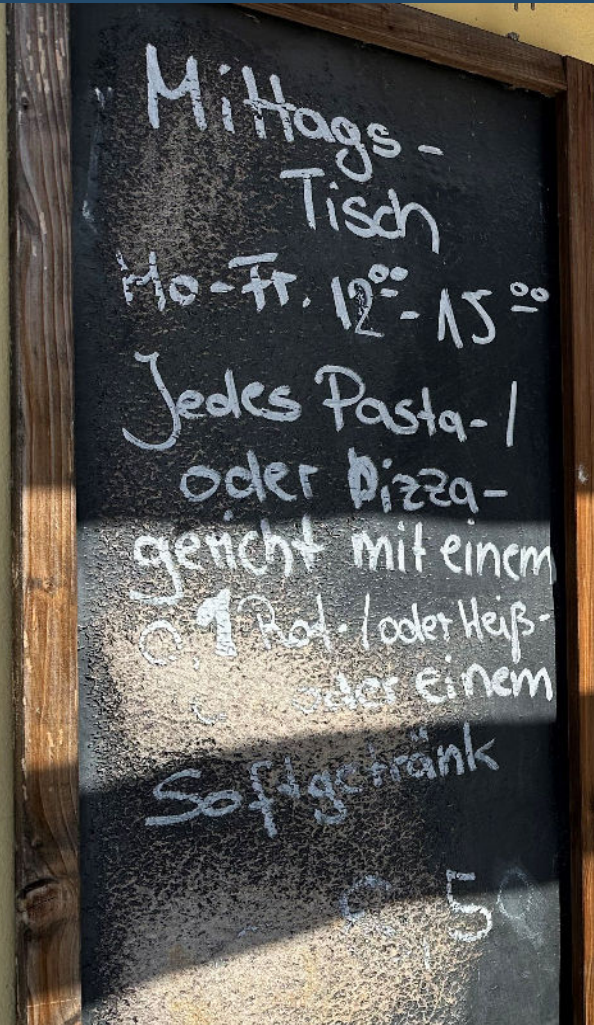 Mittags-
Tisch
Mo-Fr. 12⁰⁰ - 15⁰⁰
Jedes Pasta-/
oder Pizza-
gericht mit einem
0,1 Rot-/oder Heiß-
oder einem
Softgetränk
,5